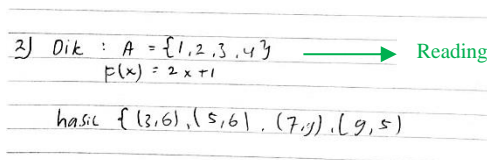 2) Dik : A = {1,2,3,4} Reading
F(x) = 2x+1
hasil {(3,6),(5,6),(7,y),(9,5)